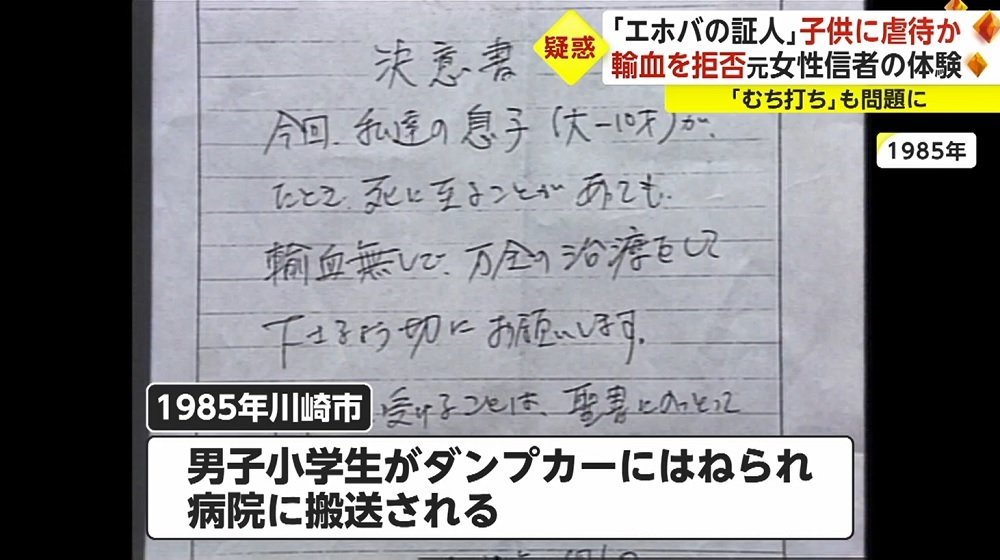 疑惑
「エホバの証人」子供に虐待か
輸血を拒否元女性信者の体験
「むち打ち」も問題に
1985年
決意書
今回、私達の息子(大-10才)が、
たとえ、死に至ることがあっても、
輸血無しで、万全の治療をして
下さるよう切にお願いします。
受けることは、聖書にのっとって
1985年川崎市
男子小学生がダンプカーにはねられ
病院に搬送される